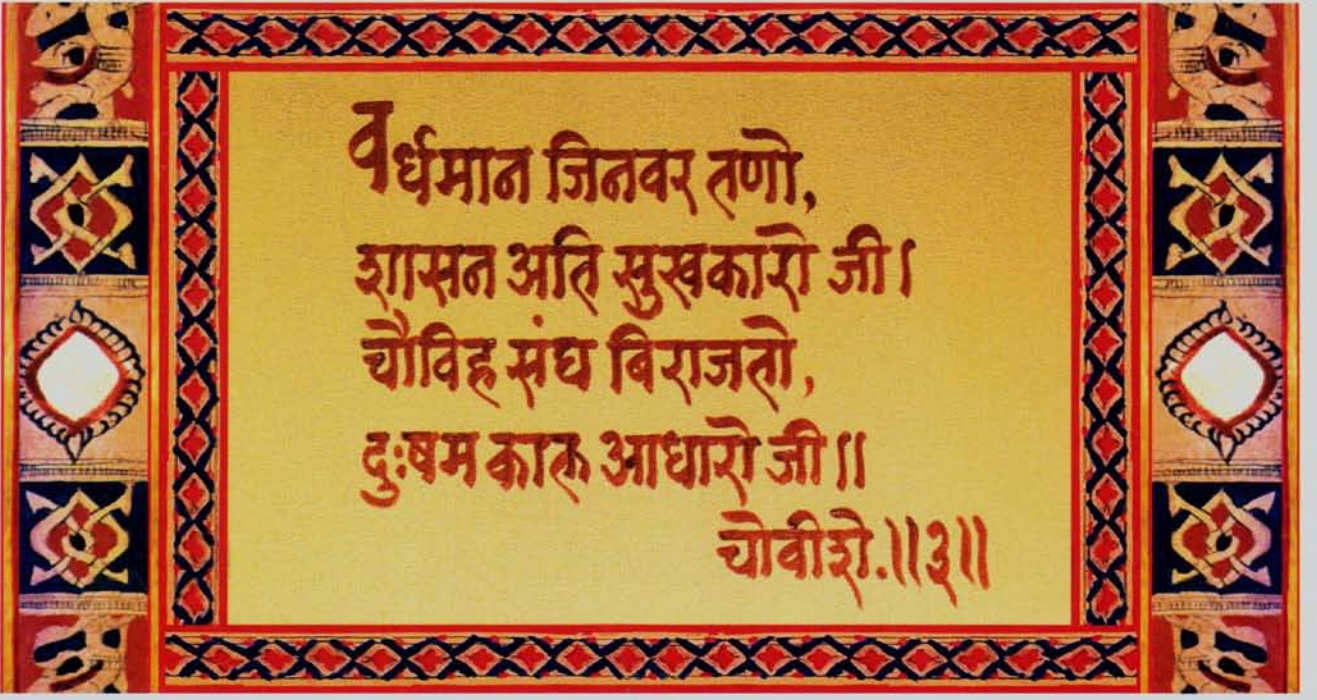 वर्धमान जिनवर तणो,
शासन अति सुखकारो जी।
चौविह संघ विराजतो,
दुःषम काल आधारो जी॥
चोवीशे.॥३॥